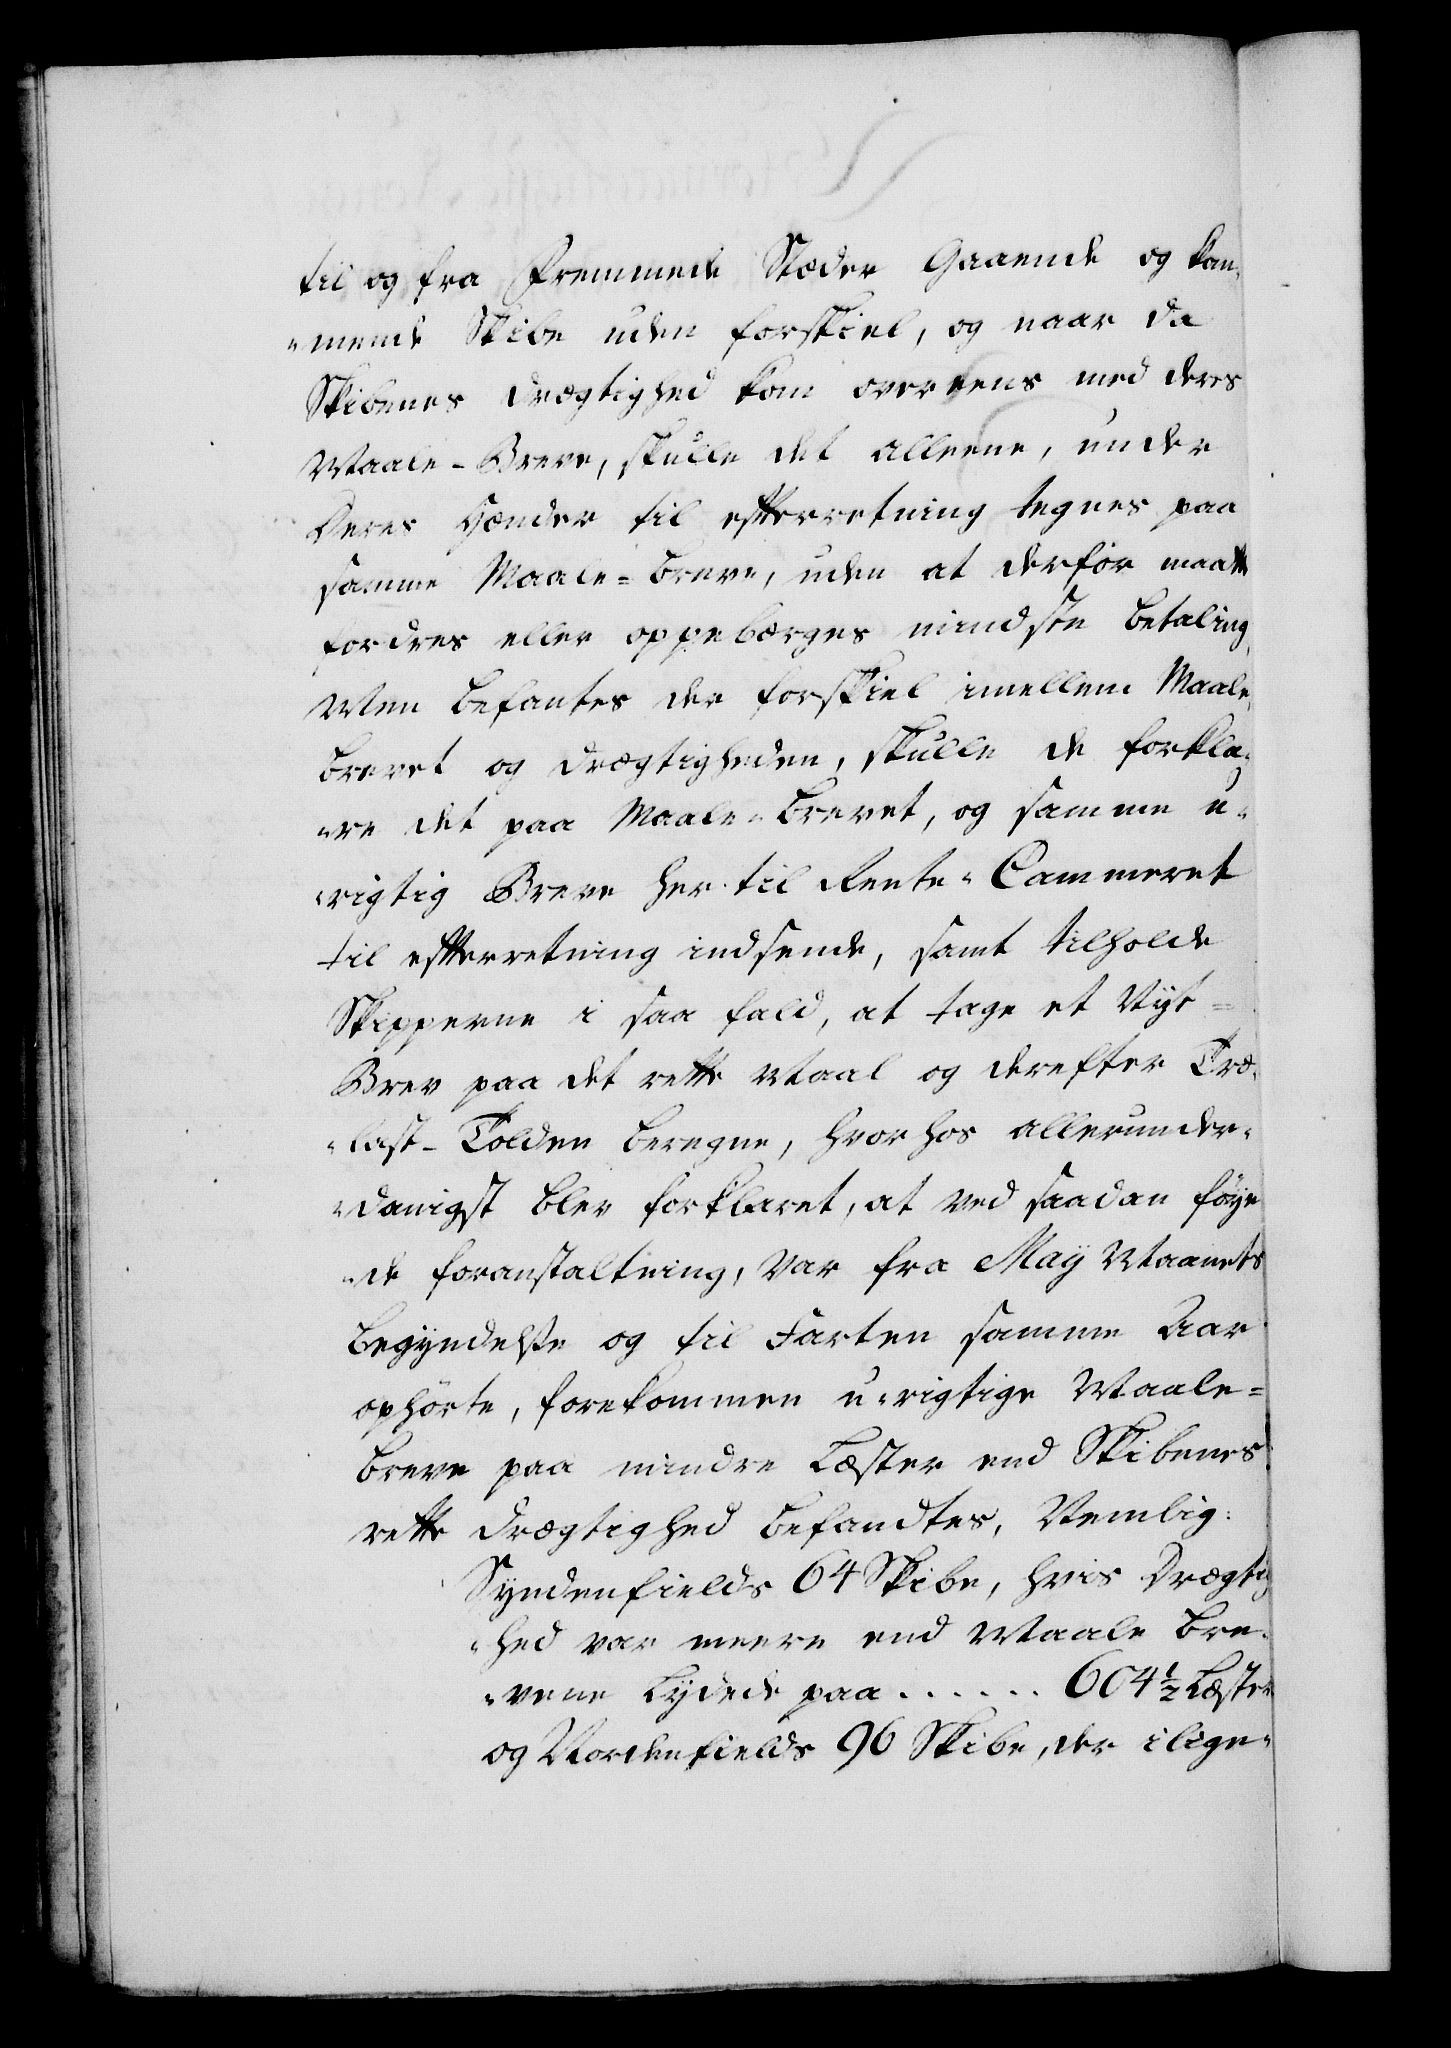 til og fra Fremmede Stæder Gaaende og kom-
-mende Skibe uden forskiel, og naar da
Skibenes Drægtighed kom overeens med deres
Maale-Breve, skulle det alleene, under
Deres Hænder til efterretning tegnes paa
samme Maale-breve, uden at derfor maatte
fordres eller oppebærges mindste betaling,
Men befantes der forskiel imellem Maale-
brevet og drægtigheden, skulle de forkla-
-re det paa Maale-brevet, og samme u-
-rigtig Breve her til Rente-Cammeret
til efterretning indsende, samt tilholde
Skipperne i saa fald, at tage et Nyt-
Brev paa det rette Maal og derefter Træ-
-last-Tolden beregne, hvorhos allerunder-
-danigst blev forklaret, at ved saadan føye
-de foranstaltning, var fra Maÿ Maanets
begyndelse og til Farten samme Aar
ophörte, forekommen u-rigtige Maale-
breve paa mindre Læster end Skibenes
rette drægtighed befandtes, Nemlig:
Syndenfields 64 Skibe, hvis Drægtig
-hed var meere end Maale bre-
-vene lÿdede paa . . . . . . 604½ Læster
og Nordenfields 96 Skibe, der ilige-